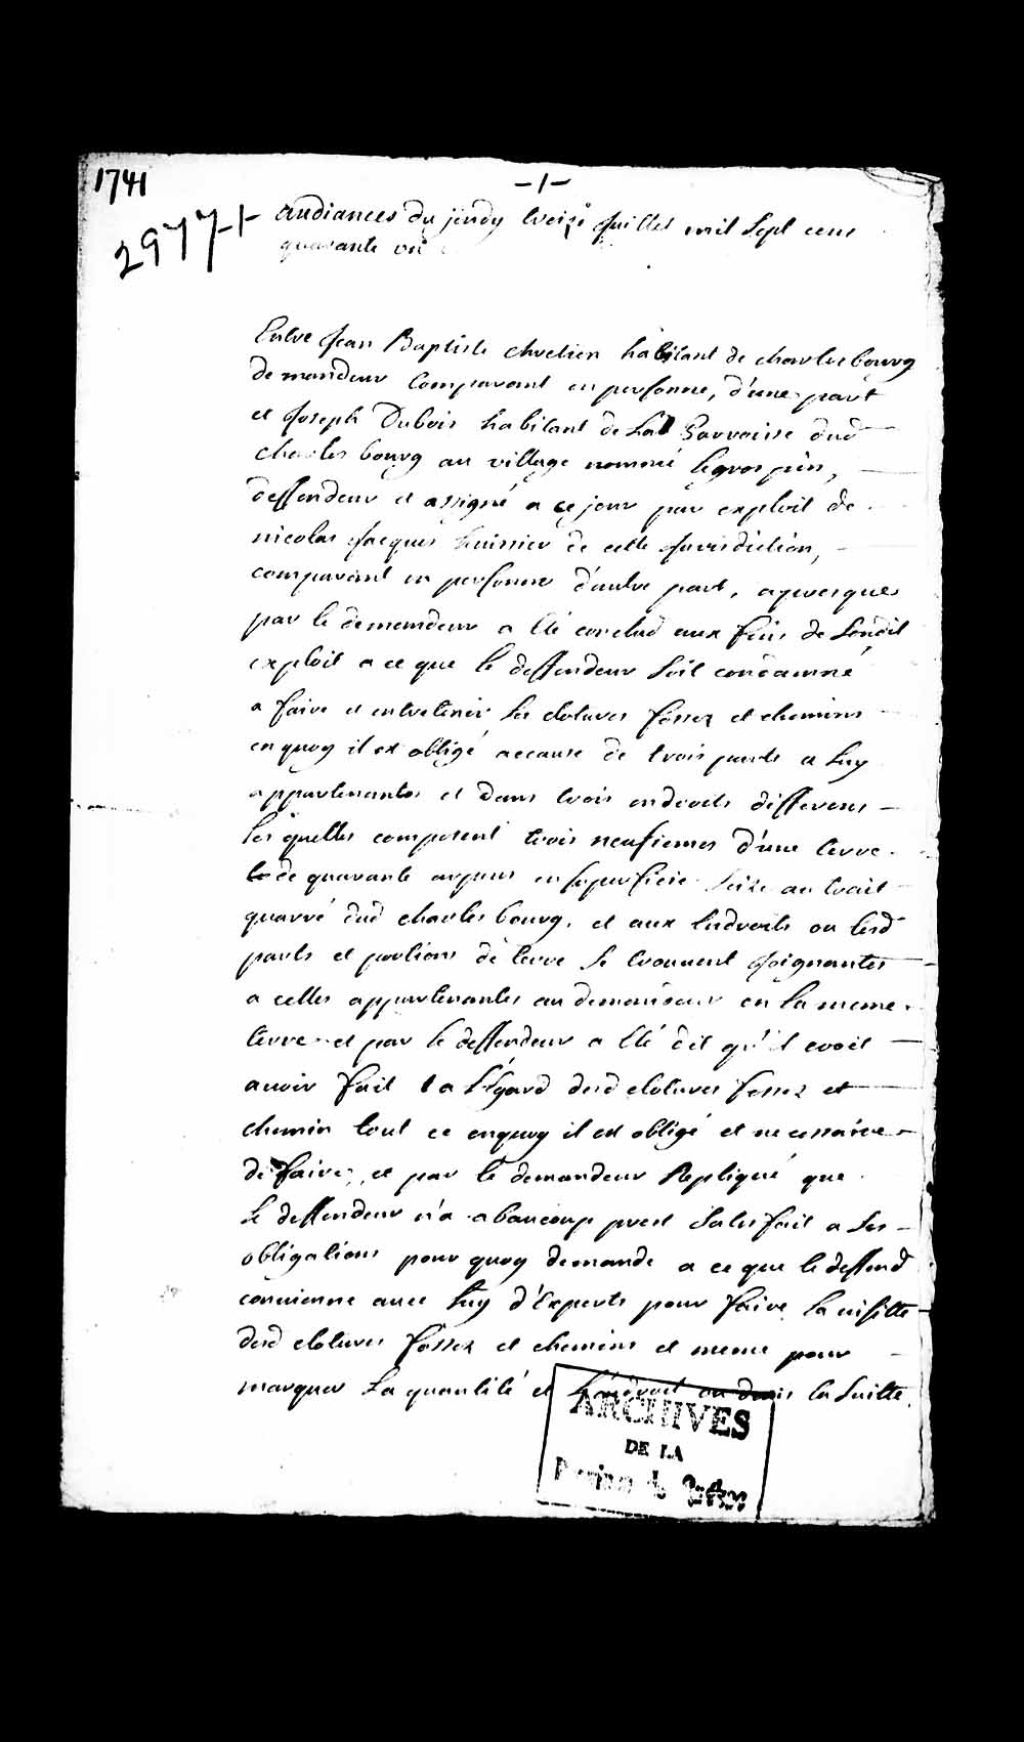 1741
-1-
2977-1-
audiances du jeudy treize Juillet mil Sept cent
quarante un
Entre Jean Baptiste chretien habitant de charlesbourg
demandeur Comparant en personne, d'une part
et Joseph Dubois habitant de la Parroisse dud
charlesbourg au village nommé legros pin,
deffendeur et assigné a ce jour par exploit de
nicolas Jacques huissier de cette Jurisdiction,
comparant en personne d'autre part, apres que
par le demandeur a Eté conclud aux fins de Sondit
exploit a ce que le deffendeur Soit condamné
a faire et entretenir les clotures fossez et chemins
en quoy il est obligé a cause de trois parts a luy
appartenantes et dans trois endroits differens
Les quelles composent trois neufiemes d'une terre
de quarante arpens en Superficie Size au trait
quarré dud charlesbourg, et aux Endroits ou lesd
parts et portions de terre Se trouvent Joignantes
a celles appartenantes au demandeur en la meme
terre et par le deffendeur a Eté dit qu'il croit
avoir fait a l'Egard desd clotures fossez et
chemin tout ce enquoy il est obligé et necessaire
de faire, et par le demandeur Repliqué que
le deffendeur n'a abaucoup prest Satisfait a Ses
obligations pour quoy demande a ce que le deffend
convienne avec luy d'Experts pour faire la visitte
desd clotures fossez et chemins et meme pour
marquer La quantité et L'endroit ou dans la Suitte
ARCHIVES
DE LA
Province de Québec